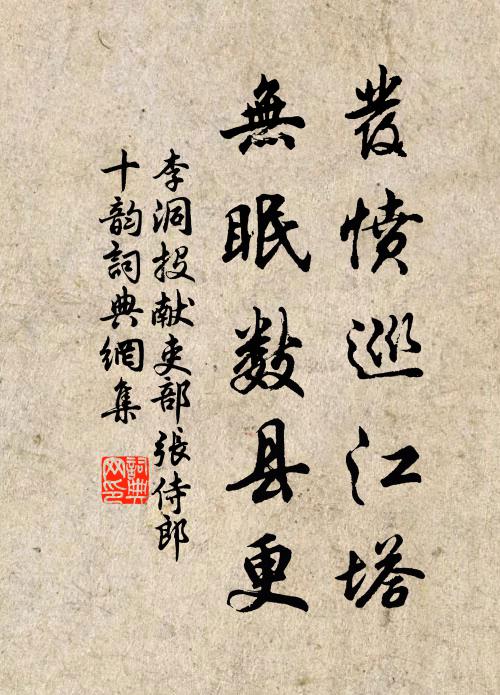 發憤巡江塔
無眠数县更
李洞投献吏部張侍郎
十韵詞典網集
詞典
网印